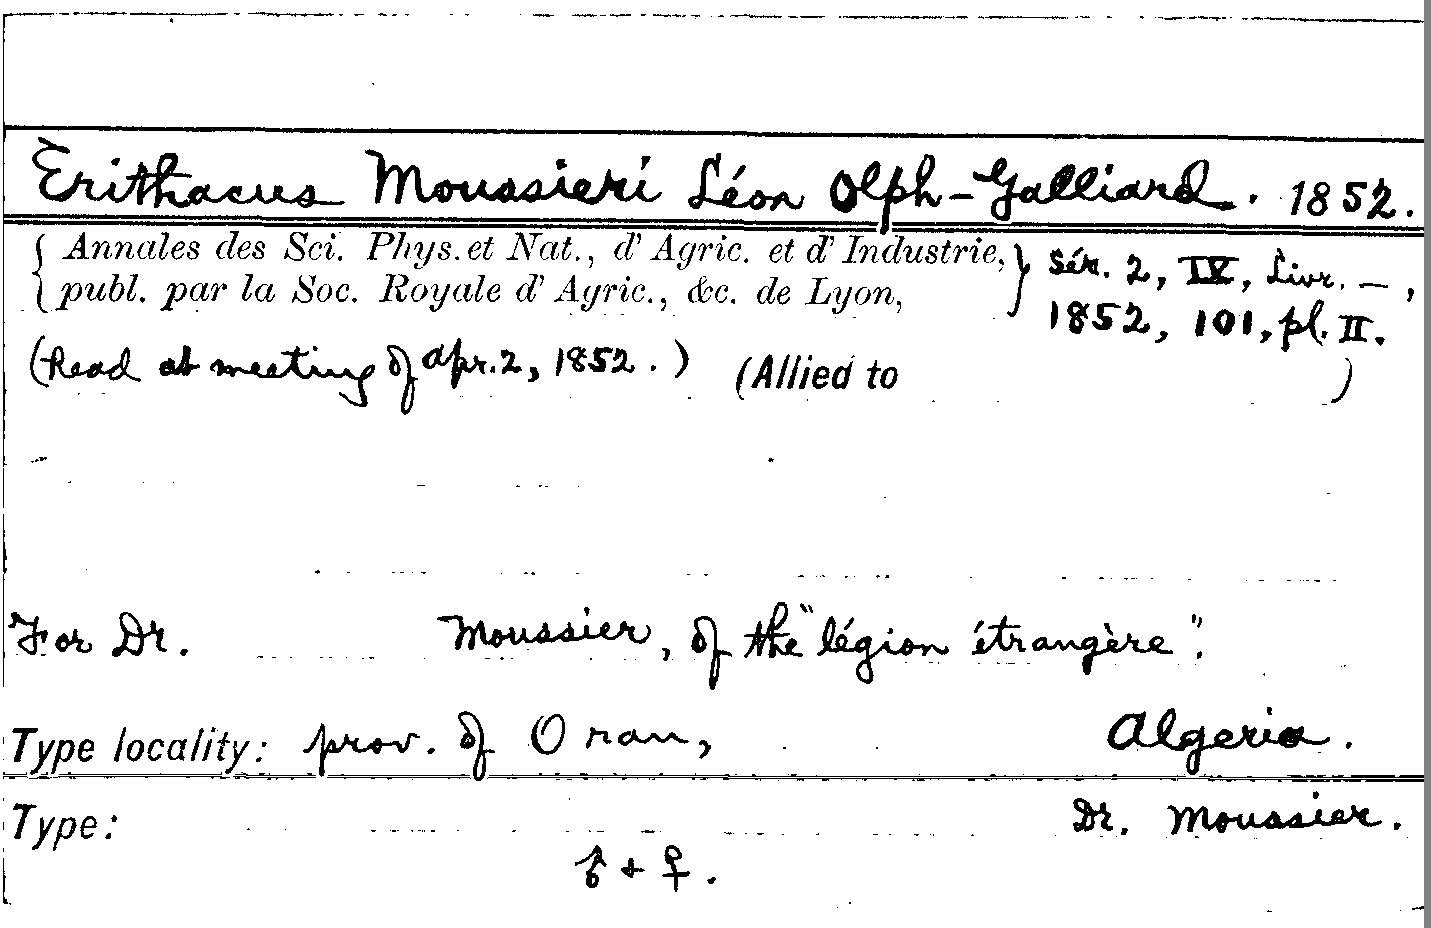 Erithacus Moussieri Léon Olph-Galliard. 1852.
{ Annales des Sci. Phys. et Nat., d' Agric. et d' Industrie, } Sér. 2, IV, Livr. —,
publ. par la Soc. Royale d' Agric., &c. de Lyon, 1852, 101, pl. II.
(Read at meeting of Apr. 2, 1852.) (Allied to )
For Dr. Moussier, of the "légion étrangère".
Type locality: prov. of Oran, Algeria.
Type: Dr. Moussier.
♂ + ♀.